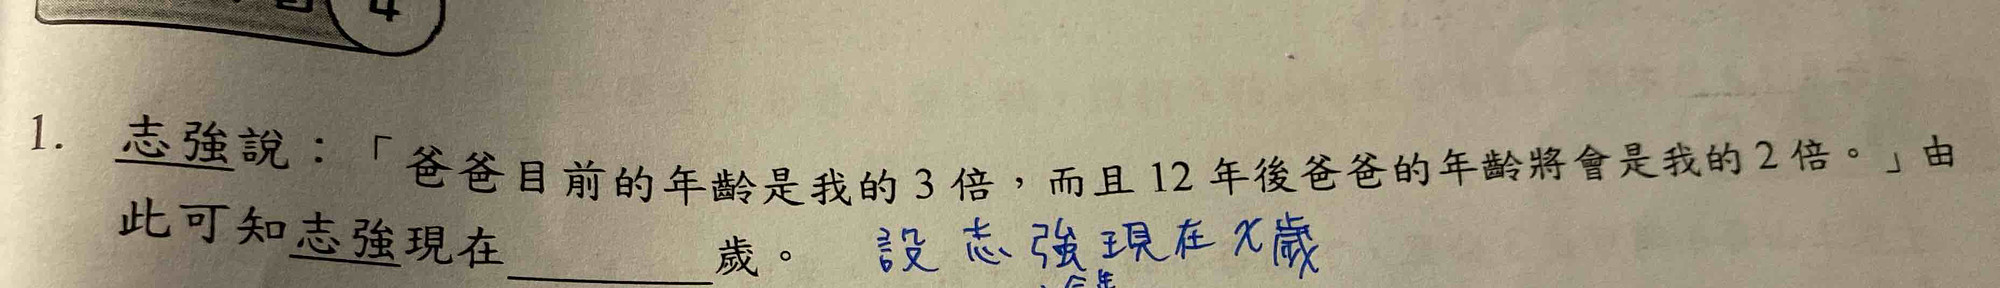 4
1. 志強說：「爸爸目前的年齡是我的 3 倍，而且 12 年後爸爸的年齡將會是我的 2 倍。」由
此可知志強現在________歲。 設志強現在x歲